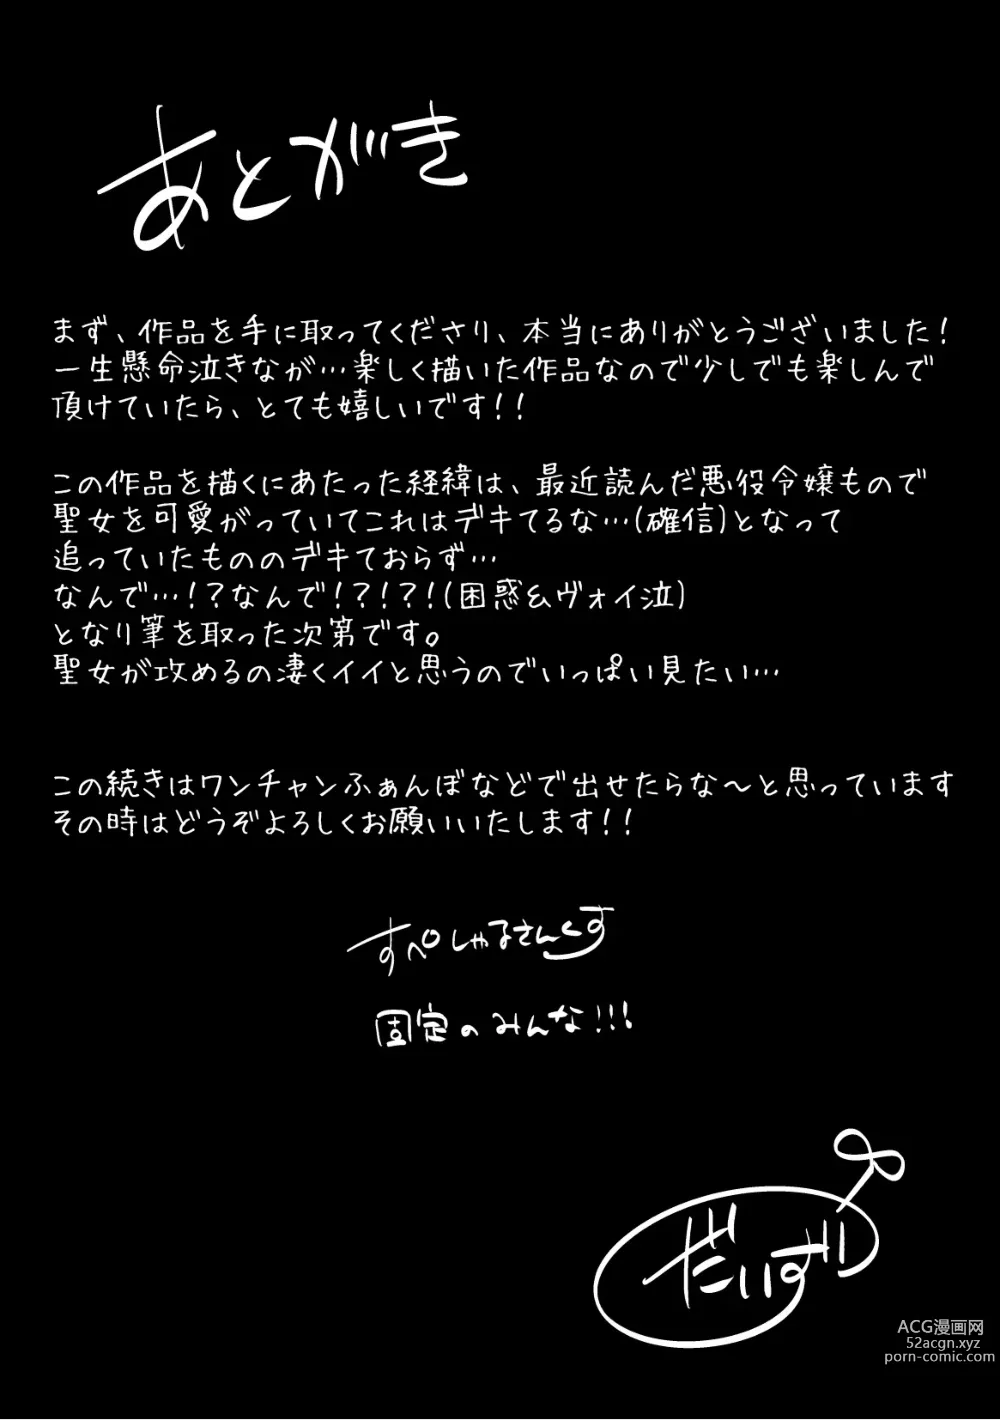 あとがき
まず、作品を手に取ってくださり、本当にありがとうございました!
一生懸命泣きなが…楽しく描いた作品なので少しでも楽しんで
頂けていたら、とても嬉しいです!!
この作品を描くにあたった経緯は、最近読んだ悪役令嬢もので
聖女を可愛がっていてこれはデキてるな…(確信)となって
追っていたもののデキておらず…
なんで…!?なんで!?!?!(困惑&ヴォイ泣)
となり筆を取った次第です。
聖女が攻めるの凄くイイと思うのでいっぱい見たい…
この続きはワンチャンふぁんぼなどで出せたらな〜と思っています
その時はどうぞよろしくお願いいたします!!
すぺしゃるさんくす
固定のみんな!!!
だいず
ACG漫画网
52acgn.xyz
porn-comic.com